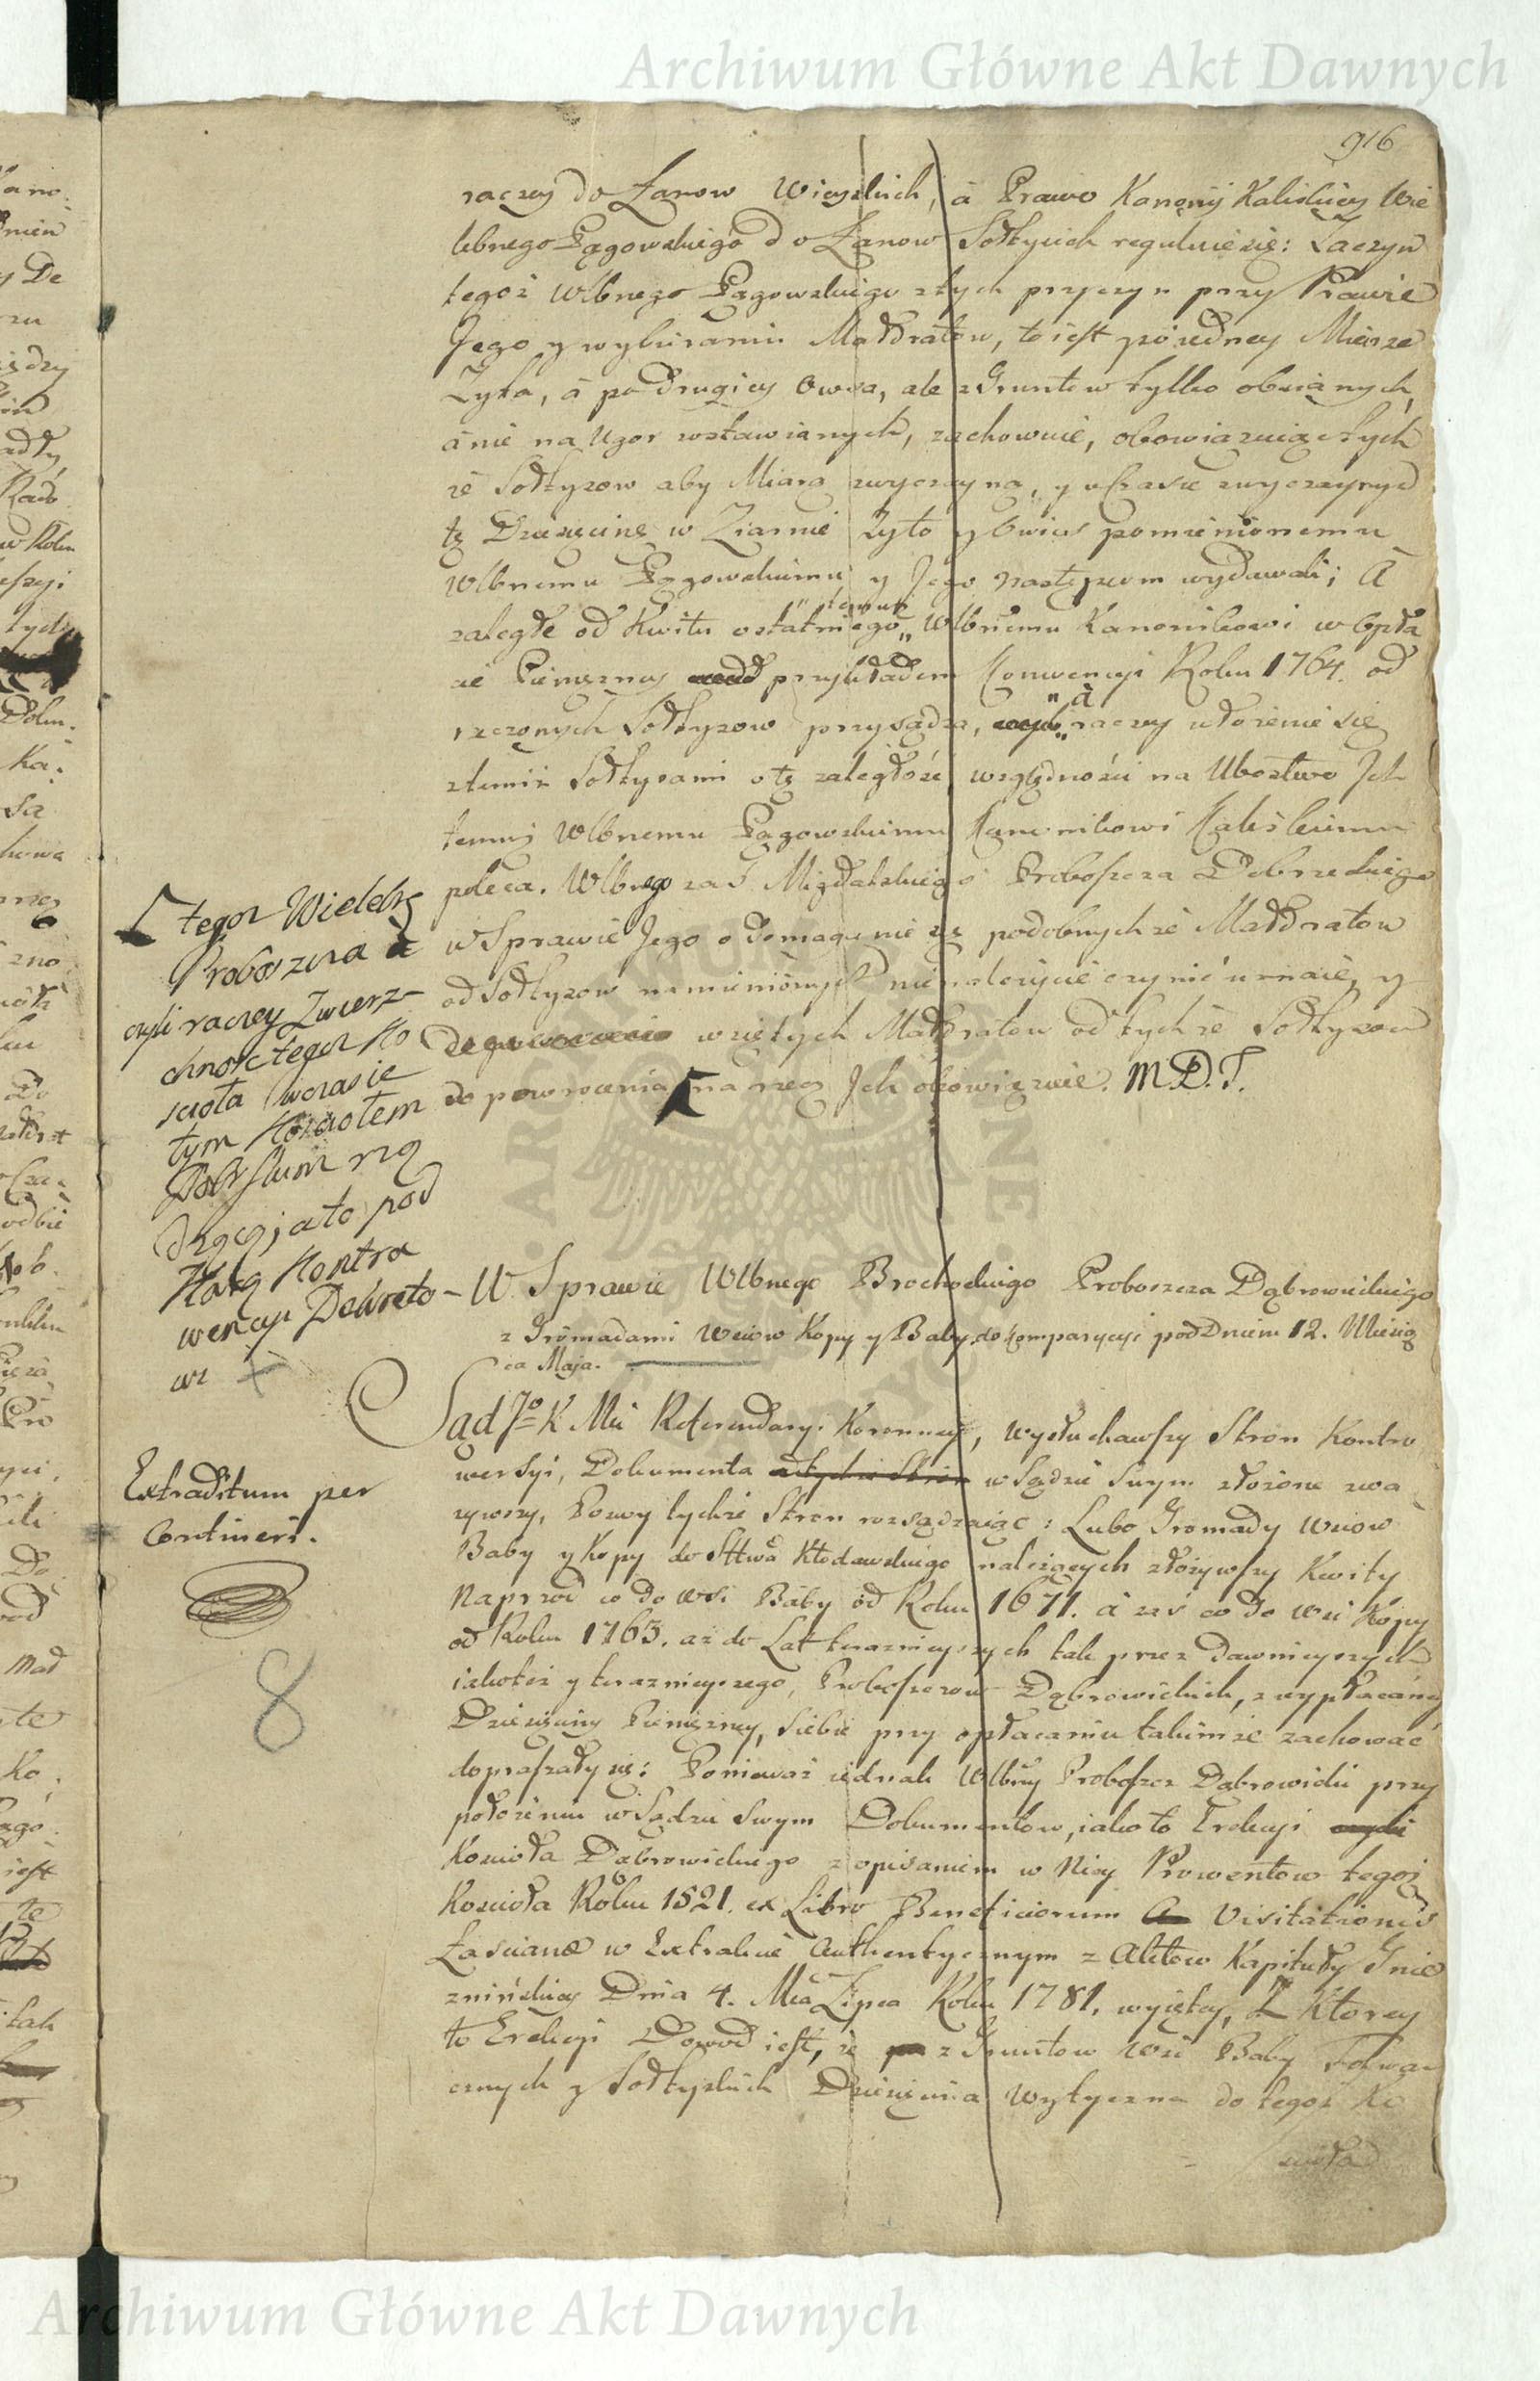 Archiwum Główne Akt Dawnych
916
raczey do Łanow Wieyskich, á Prawo Kanonij Kaliskiey Wie
lebnego Pągowskiego do Łanow Sołtysich reguluie się: Zaczym
tegoż Wlbnego Pągowskiego z tych przyczyn przy Prawie
Jego y wybieraniu Małdratow, to iest po iedney Mierze
Zyta, á po drugiey Owsa, ale z Gruntow tylko obsianych,
á nie na Ugor zostawianych, zachowuie, obowiązuiąc tych
że Sołtysow aby Miarą zwyczayną, y w Czasie zwyczaynym
tę Dziesięcinę w Ziarnie Zyto y Owies pomienionemu
Wlbnemu Pągowskiemu y Jego następcom wydawali; A
zaległe od Kwitu ostatniego „temuż„ Wlbnemu Kanonikowi w Opła
cie Pienięzney przykładem Konwencyi Roku 1764. od
rzeczonych Sołtysow przysądza, „á„ raczey ułożenie się
z temiż Sołtysami o tę zaległość, względności na Ubostwo Ich
temuż Wlbnemu Pągowskiemu Kanonikowi Kaliskiemu
poleca. Wlbnego zaś Migdalskiego Proboszcza Dobrzeckiego
w Sprawie Jego o domaganie się podobnychże Małdratow
od Sołtysow namienionych nienależycie czynić uznaie, y
wziętych Małdratow od tychże Sołtysow
do powrocenia na rzecz Ich obowięzuie. M.D.T.
tegoż Wielebg
Proboszcza á
czyli raczey Zwierz-
chność tegoż Ko
scioła w czasie
tym Kosciołem
Dobrskim rzą
dzącą, a to pod
Karą Kontra
wencyi Dekreto-
wi
W Sprawie Wlbnego Brochockiego Proboszcza Dąbrowickiego
z Gromadami Wsiow Kopy y Baby do komparycyi pod Dniem 12. Miesią
ca Maja.
Sąd Jo K Mci Referendary: Koronney, wysłuchawszy Stron Kontro
wersyi, Dokumenta w Sądzie Swym złożone zwa
żywszy, Pozwy tychże Stron rozsądzaiąc: Lubo Gromady Wsiow
Baby y Kopy do Sttwa Kłodawskiego należących złożywszy Kwity
Naprzod co do Wsi Baby od Roku 1671. á zaś co do Wsi Kopy
od Roku 1763. aż do Lat teraznieyszych tak przez dawnieyszych
iakoteż y teraznieyszego, Proboszczow Dąbrowickich, z wypłacaney
Dziesięciny Pienięzney, Siebie przy opłacaniu takimże zachować
dopraszały się: Ponieważ iednak Wlbny Proboszcz Dąbrowicki przy
położeniu w Sądzie Swym Dokumentow, iako to Erekcyi
Koscioła Dąbrowickiego z opisaniem w Niey Prowentow tegoż
Koscioła Roku 1521. ex Libro Beneficiorum Visitationis
Łasciana w Extrakcie Authentycznym z Aktow Kapituły Gnie
znińskiey Dnia 4. Mca Lipca Roku 1781. wyiętey, Z Ktorey
to Erekcyi Dowod iest, że z Gruntow Wsi Baby Folwar
cznych y Sołtyskich Dziesięcina Wytyczna do tegoż Ko
scioła
Extraditum per
Contineri.
8
Archiwum Główne Akt Dawnych